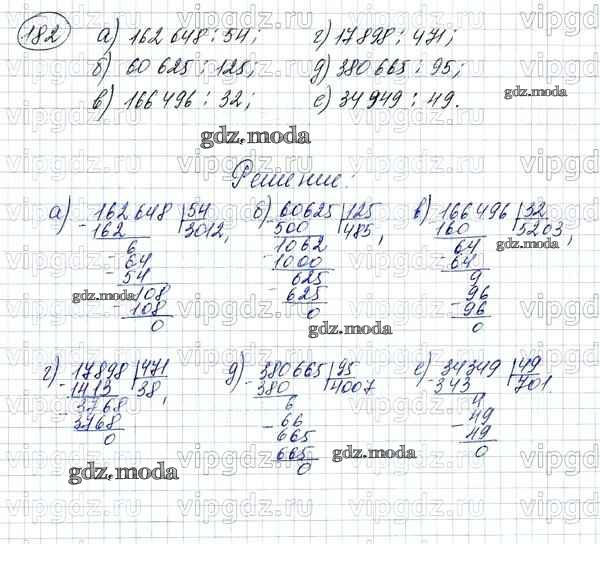 182 а) 162 648 : 54; г) 17 898 : 471;
б) 60 625 : 125; д) 380 665 : 95;
в) 166 496 : 32; е) 34 949 : 49.
gdz.moda
gdz.moda
Решение:
а) 162 648 54
- 162 3012,
6
- 64
- 54
108
- 108
0
gdz.moda
б) 60625 125
- 500 485,
1062
- 1000
625
- 625
0
gdz.moda
в) 166 496 32
- 160 5203,
64
- 64
9
96
- 96
0
gdz.moda
г) 17898 471
- 1413 38,
3768
- 3768
0
gdz.moda
д) 380 665 95
- 380 4007
6
- 66
665
665
0
gdz.moda
е) 34349 49
- 343 701.
4
- 49
49
0
gdz.moda
vipgdz